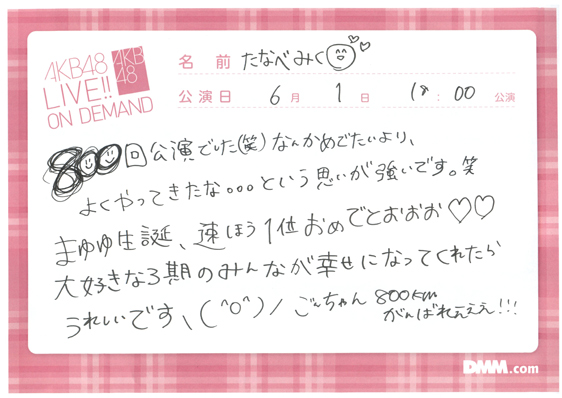 AKB48
LIVE!!
ON DEMAND
AKB
48
名 前 たなべみく
公演日 6月 1日 18:00 公演
800回公演でした(笑)なんかめでたいより、
よくやってきたな。。。という思いが強いです。笑
まゆゆ生誕、速ほう1位おめでとおおお♡♡
大好きな3期のみんなが幸せになってくれたら
うれしいです、(^o^)/ ごんちゃん 800km
がんばれえええ!!!
DMM.com